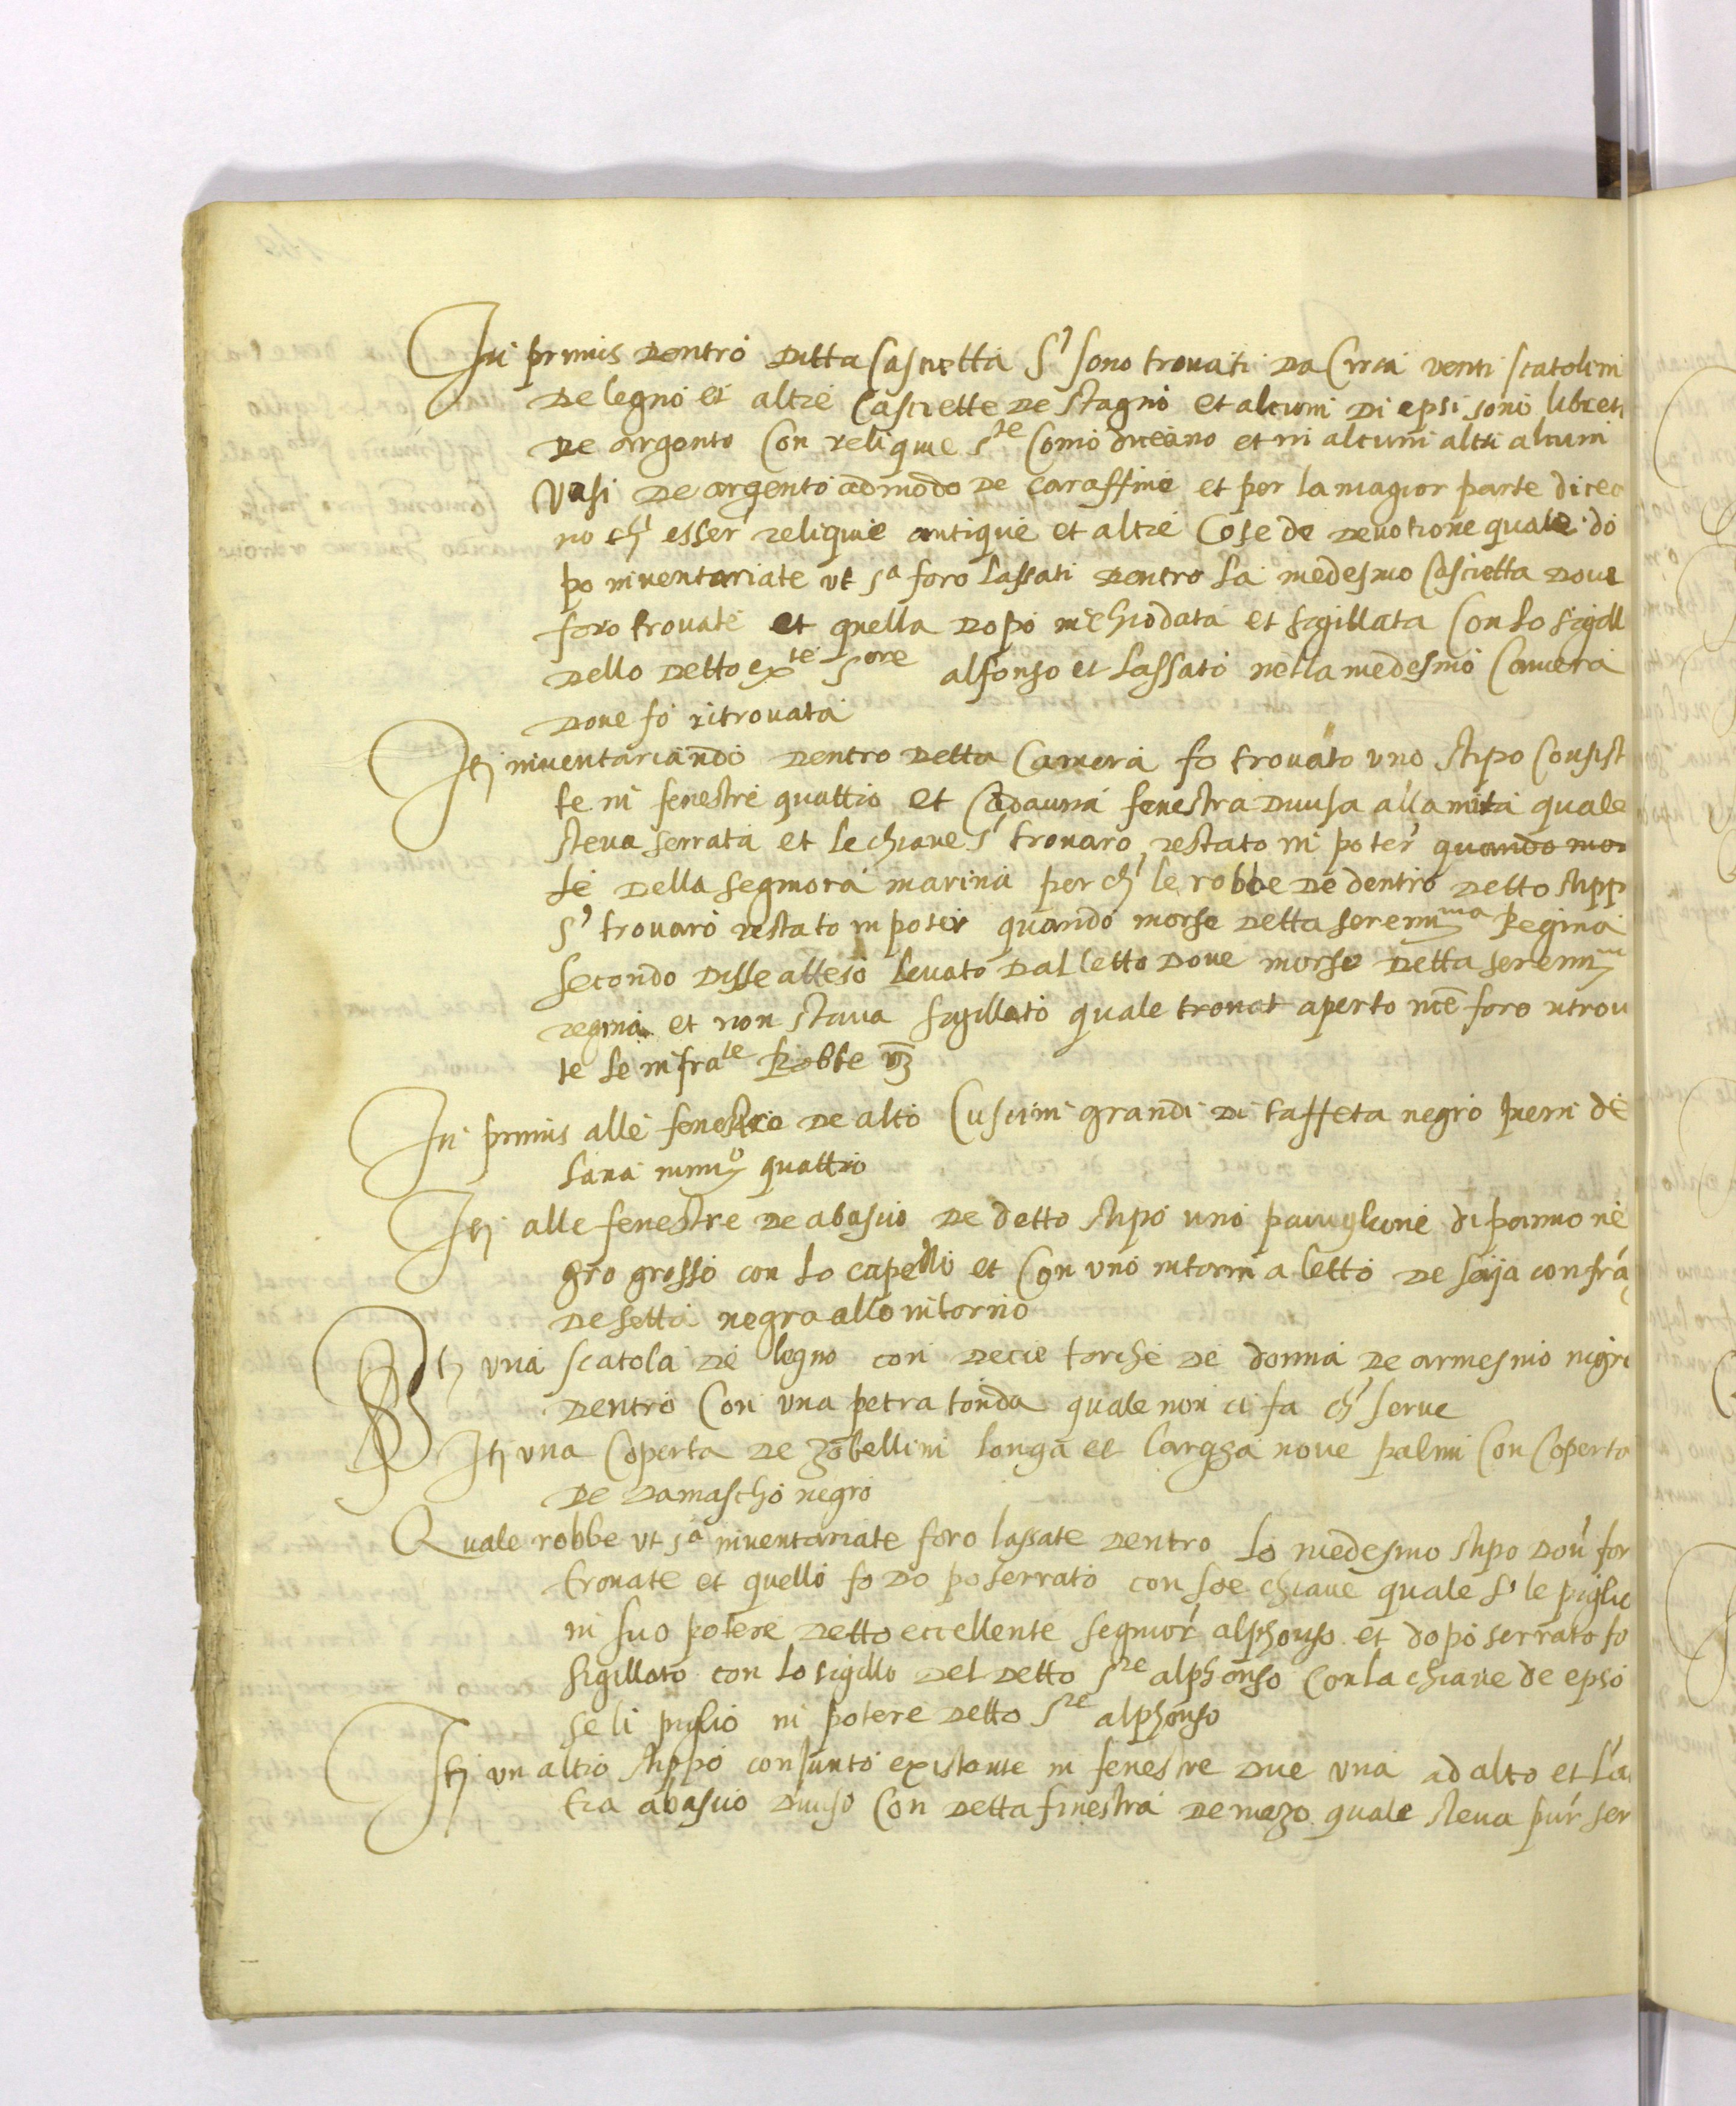 In primis dentro ditta Cascietta s' sono trovati da Circa venti scatolini
de legno et altre Casciette de stagno et alcuni di epsi sono libret
de argento Con reliquie s.te Como diceano et in alcuni altri alcuni
Vasi de argento ad modo de caraffine et per la magior parte dicea
no ch' esser reliquie antique et altre Cose de devotione quale do
po inventariate ut s.a foro lassati dentro la medesmo Cascietta dove
foro trovate et quella dopo inchiodata et sigillata Con lo sigill
dello detto ex.te s.ore alfonso et lassato nella medesmo Camera
dove fo ritrovata
Itj inventariando dentro detta Camera fo trovato uno stipo Consist
te in fenestre quattro et Cadauna fenestra divisa alla mità quale
steva serrata et le chiave s' trovaro restato in poter' quando mor
te della segniora marina per ch' le robbe de dentro detto stipp
s' trovaro restato in poter quando morse detta seren.ma Regina
secondo disse atteso levato dal letto dove morse detta seren.ma
regina et non stava sigillato quale trovat aperto nce foro ritrov
te le infra.te Robbe vz
In primis alle fenestre de alto Cuscini grandi di taffeta negro pieni de
lana num.o quattro
Itj alle fenestre de abascio de detto stipo uno paviglione di panno ne
gro grosso con lo capello et Con uno intorni a letto de saija con fra
de setta negra allo intorno
Itj una scatola de legno con decie torche de donna de armesino nigri
dentro Con una petra tonda quale non ci sa ch' serve
Itj una Coperta de zobellini longa et largza nove palmi Con Coperta
de damascho negro
Quale robbe ut s.a inventariate foro lassate dentro lo medesmo stipo dov' for
trovate et quello fo dopo serrato con soe chiave quale s' le piglio
in suo potere detto eccellente segnior' alphonso et dopo serrato fo
sigillato con lo sigillo del detto s.re alphonso Con la chiave de epso
se li piglio in potere detto s.re alphonso
Itj un altro stippo coniunto existente in fenestre due una ad alto et l'a
tra abascio diviso Con detta finestra de mezo quale steva pur' ser